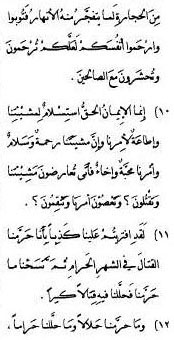 مِنَ الْحِجَارَةِ لَمَا يَتَفَجَّرُ مِنْهُ الْأَنْهَارُ فَتُوبُوا
وَارْحَمُوا أَنْفُسَكُمْ لَعَلَّكُمْ تُرْحَمُونَ
وَتُحْشَرُونَ مَعَ الصَّالِحِينَ .
(١٠) إِنَّمَا الْإِيمَانُ الْحَقُّ اسْتِسْلَامٌ لِمَشِيئَتِنَا
وَإِطَاعَةٌ لِأَمْرِنَا وَإِنَّ مَشِيئَتَنَا رَحْمَةٌ وَسَلَامٌ
وَأَمْرَنَا مَحَبَّةٌ وَإِخَاءٌ فَأَنَّى تُعَارِضُونَ مَشِيئَتَنَا
وَتَقْتُلُونَ ؟ وَتَعْصُونَ أَمْرَنَا وَتَنْقِمُونَ ؟
(١١) لَقَدِ افْتَرَيْتُمْ عَلَيْنَا كَذِبًا بِأَنَّا حَرَّمْنَا
الْقِتَالَ فِي الشَّهْرِ الْحَرَامِ ثُمَّ نَسَخْنَا مَا
حَرَّمْنَا فَحَلَّلْنَا فِيهِ قِتَالًا كَبِيرًا .
(١٢) وَمَا حَرَّمْنَا حَلَالًا وَمَا حَلَّلْنَا حَرَامًا ،